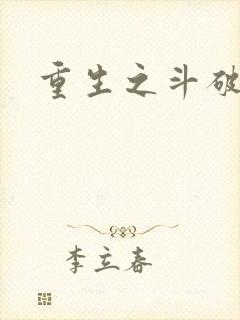 重生之斗破
李立春